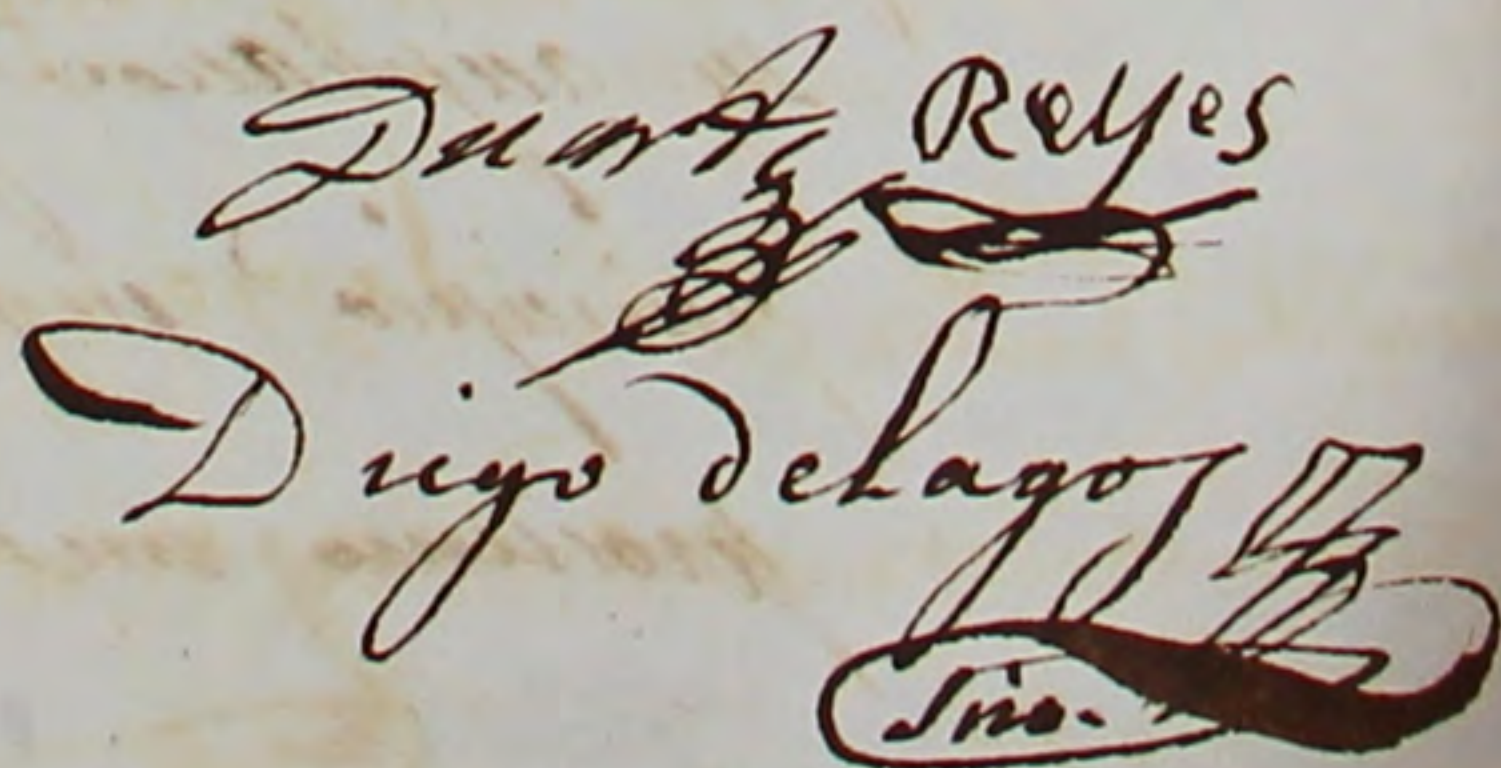 Duarte Reyes
Diego de Lagos
Srio.